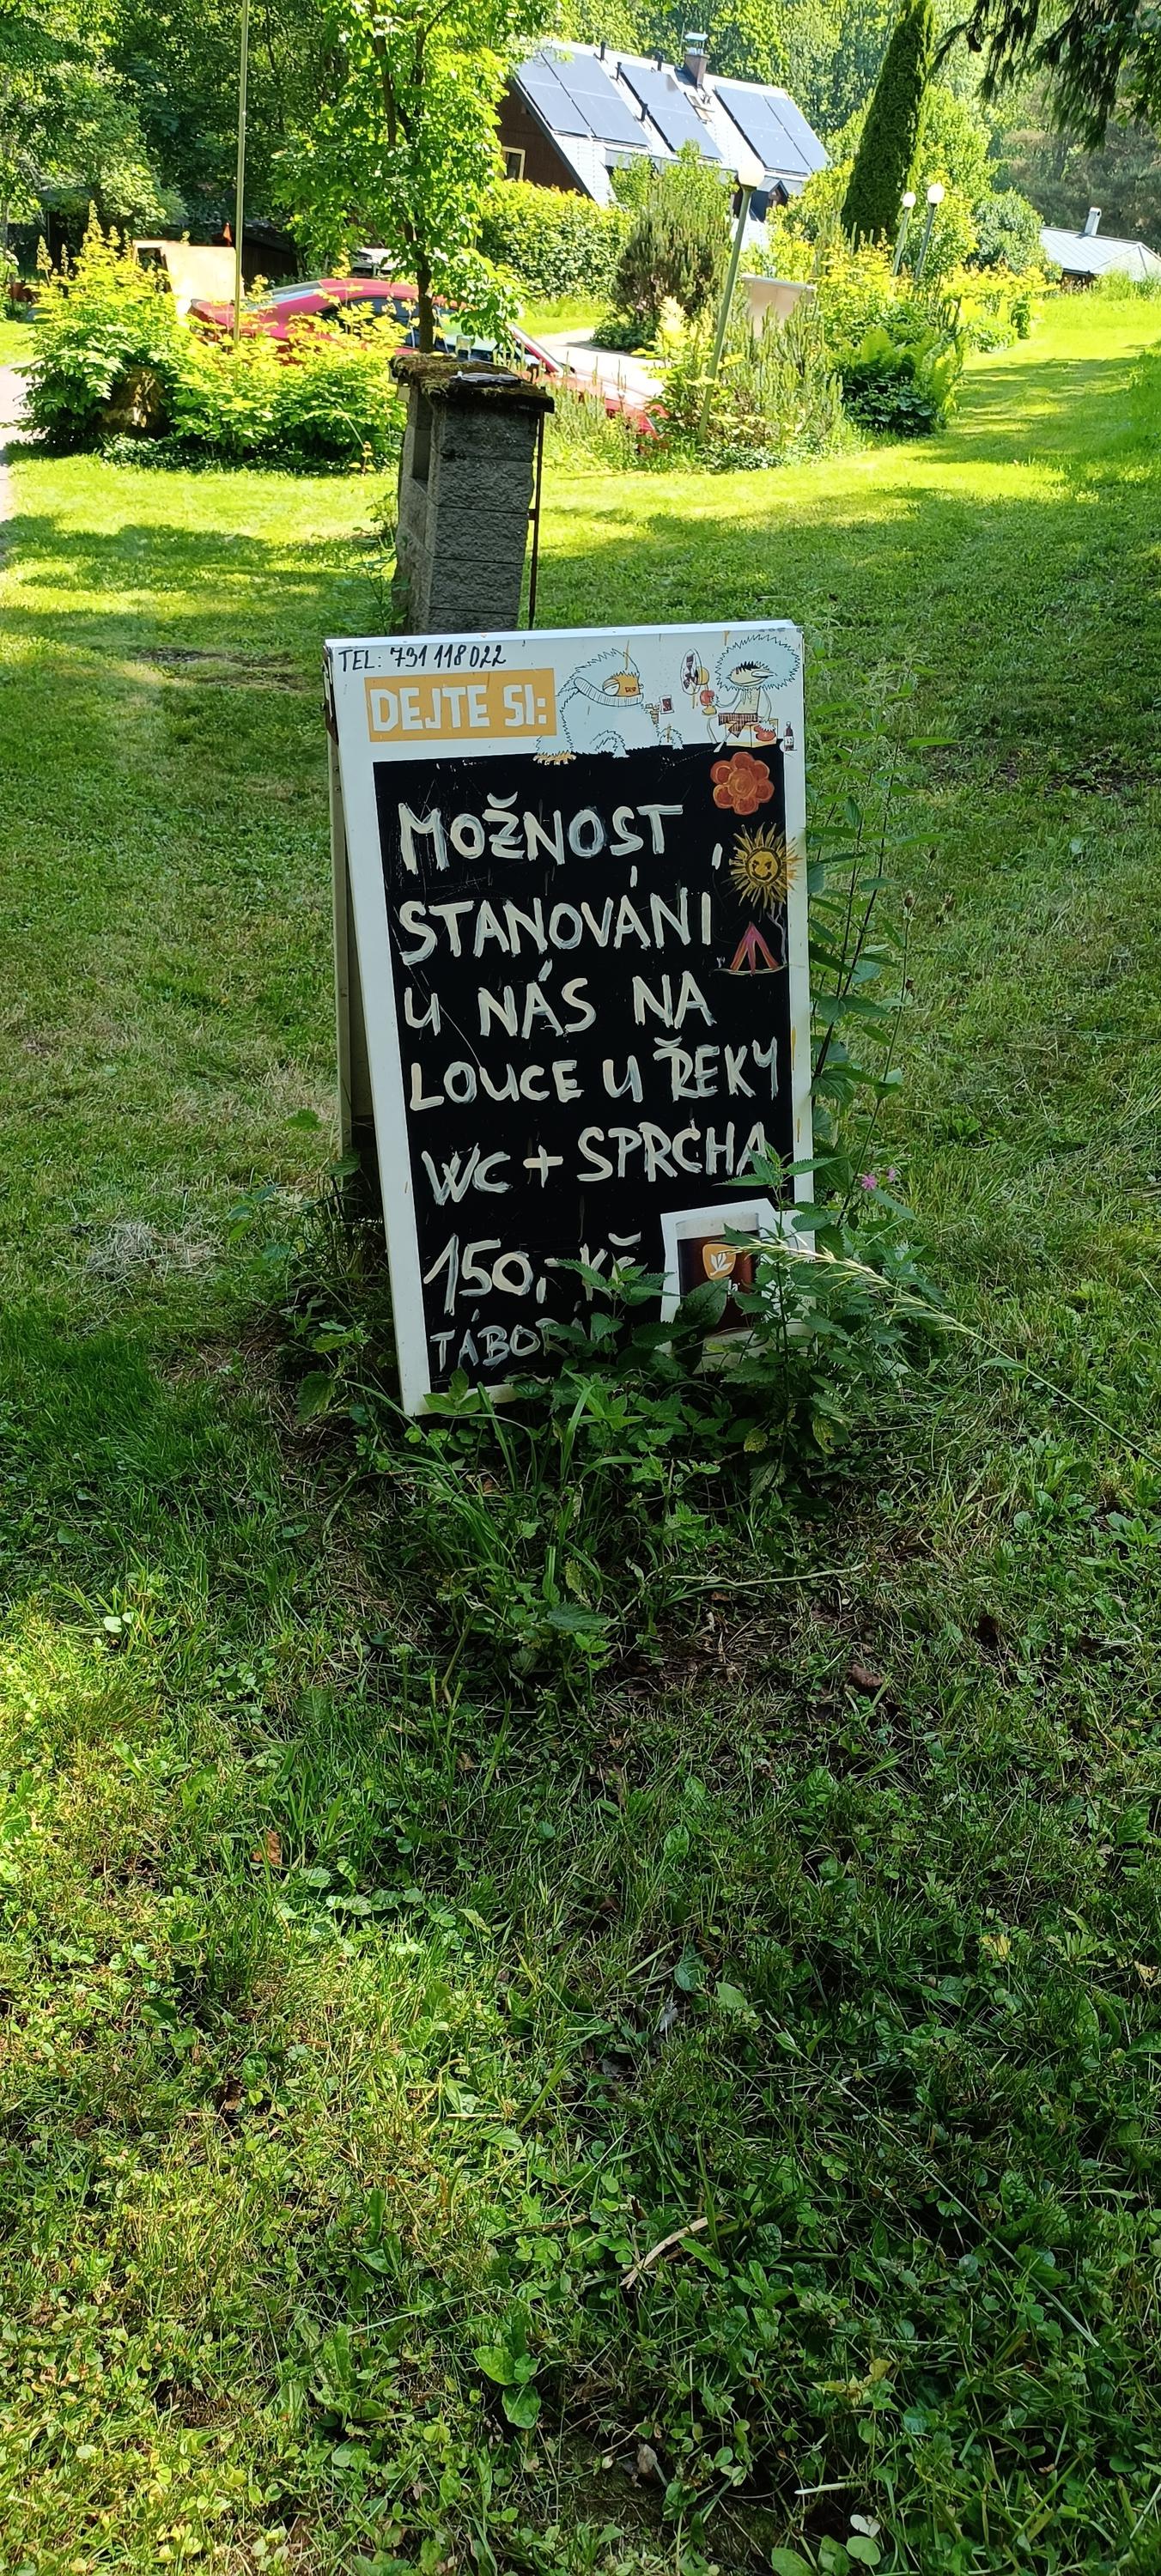 TEL: 731 118 022
DEJTE SI:
MOŽNOST
STANOVÁNÍ
U NÁS NA
LOUCE U ŘEKY
WC + SPRCHA
150,- KČ